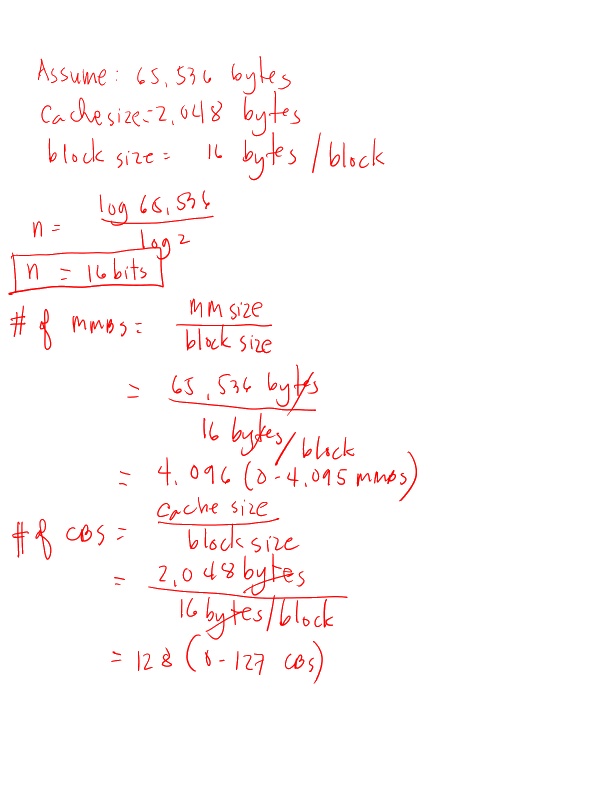 Assume: 65,536 bytes
Cache size = 2,048 bytes
block size = 16 bytes / block
n = log 65,536 / log 2
n = 16 bits
# of MMBs = MM size / block size
= 65,536 bytes / 16 bytes/block
= 4,096 (0-4,095 MMBs)
# of CBs = cache size / block size
= 2,048 bytes / 16 bytes/block
= 128 (0-127 CBs)